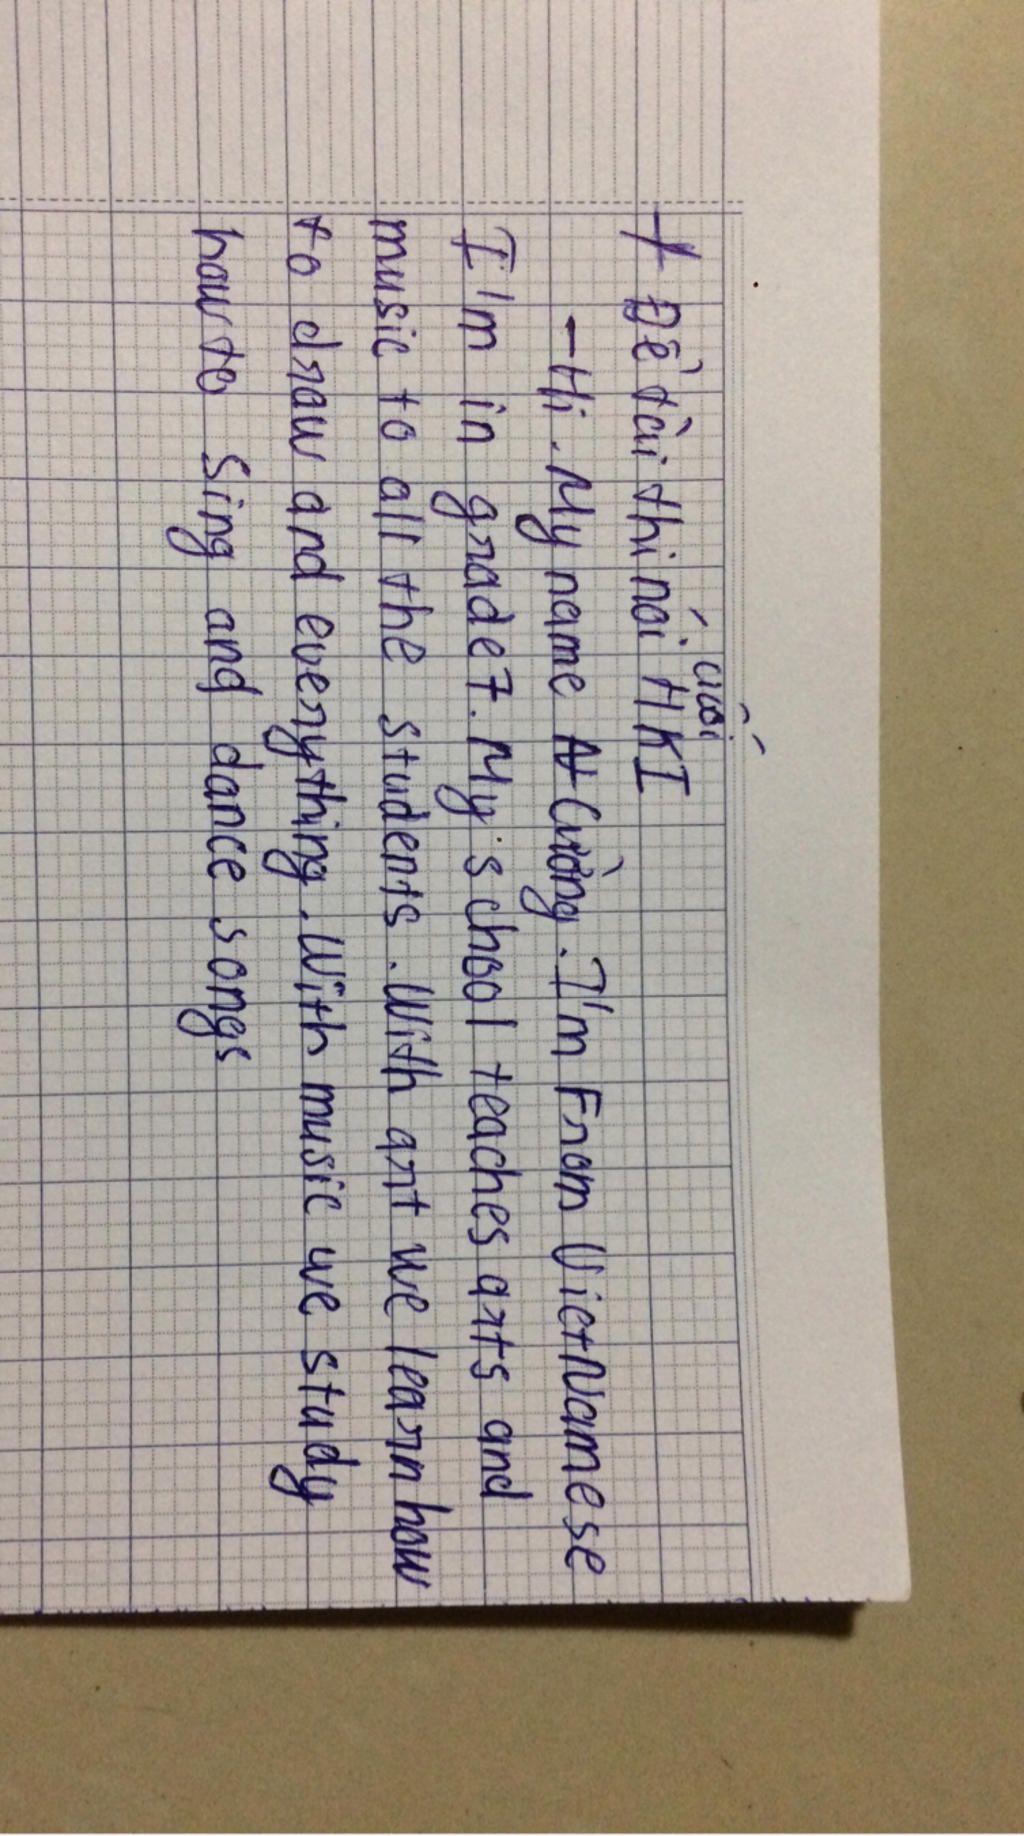 Đề tài thi nói cuối HKI
- Hi. My name Cường. I'm From VietNamese
I'm in grade 7. My school teaches arts and
music to all the students. With art we learn how
to draw and everything. With music we study
how to sing and dance songs